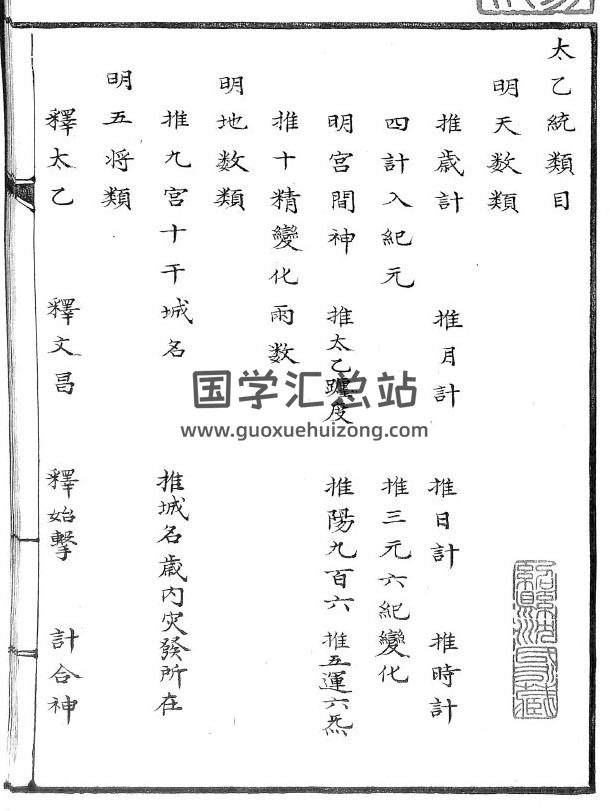 太乙統類目
明天数類
推歳計 推月計 推日計 推時計
四計入紀元 推三元六紀變化
明宫間神 推太乙躔度 推陽九百六 推五運六炁
推十精變化雨数
明地数類
推九宫十干城名 推城名歳内灾發所在
明五将類
釋太乙 釋文昌 釋始擊 計合神
国学汇总站
www.guoxuehuizong.com